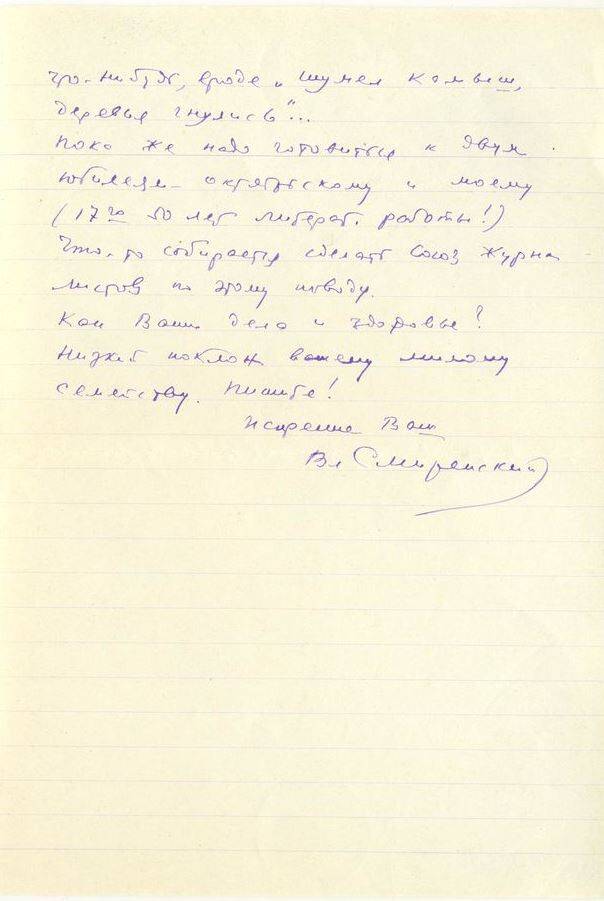 что-нибудь, вроде „Шумел камыш,
деревья гнулись"...
Пока же надо готовиться к двум
юбилеям – октябрьскому и моему
(17го 50 лет литерат. работы!)
Что-то собирается сделать Союз Журна-
листов по этому поводу.
Как Ваши дела и здоровье?
Низкий поклон вашему милому
семейству. Пишите!
Искренне Ваш
Вл Смиренский